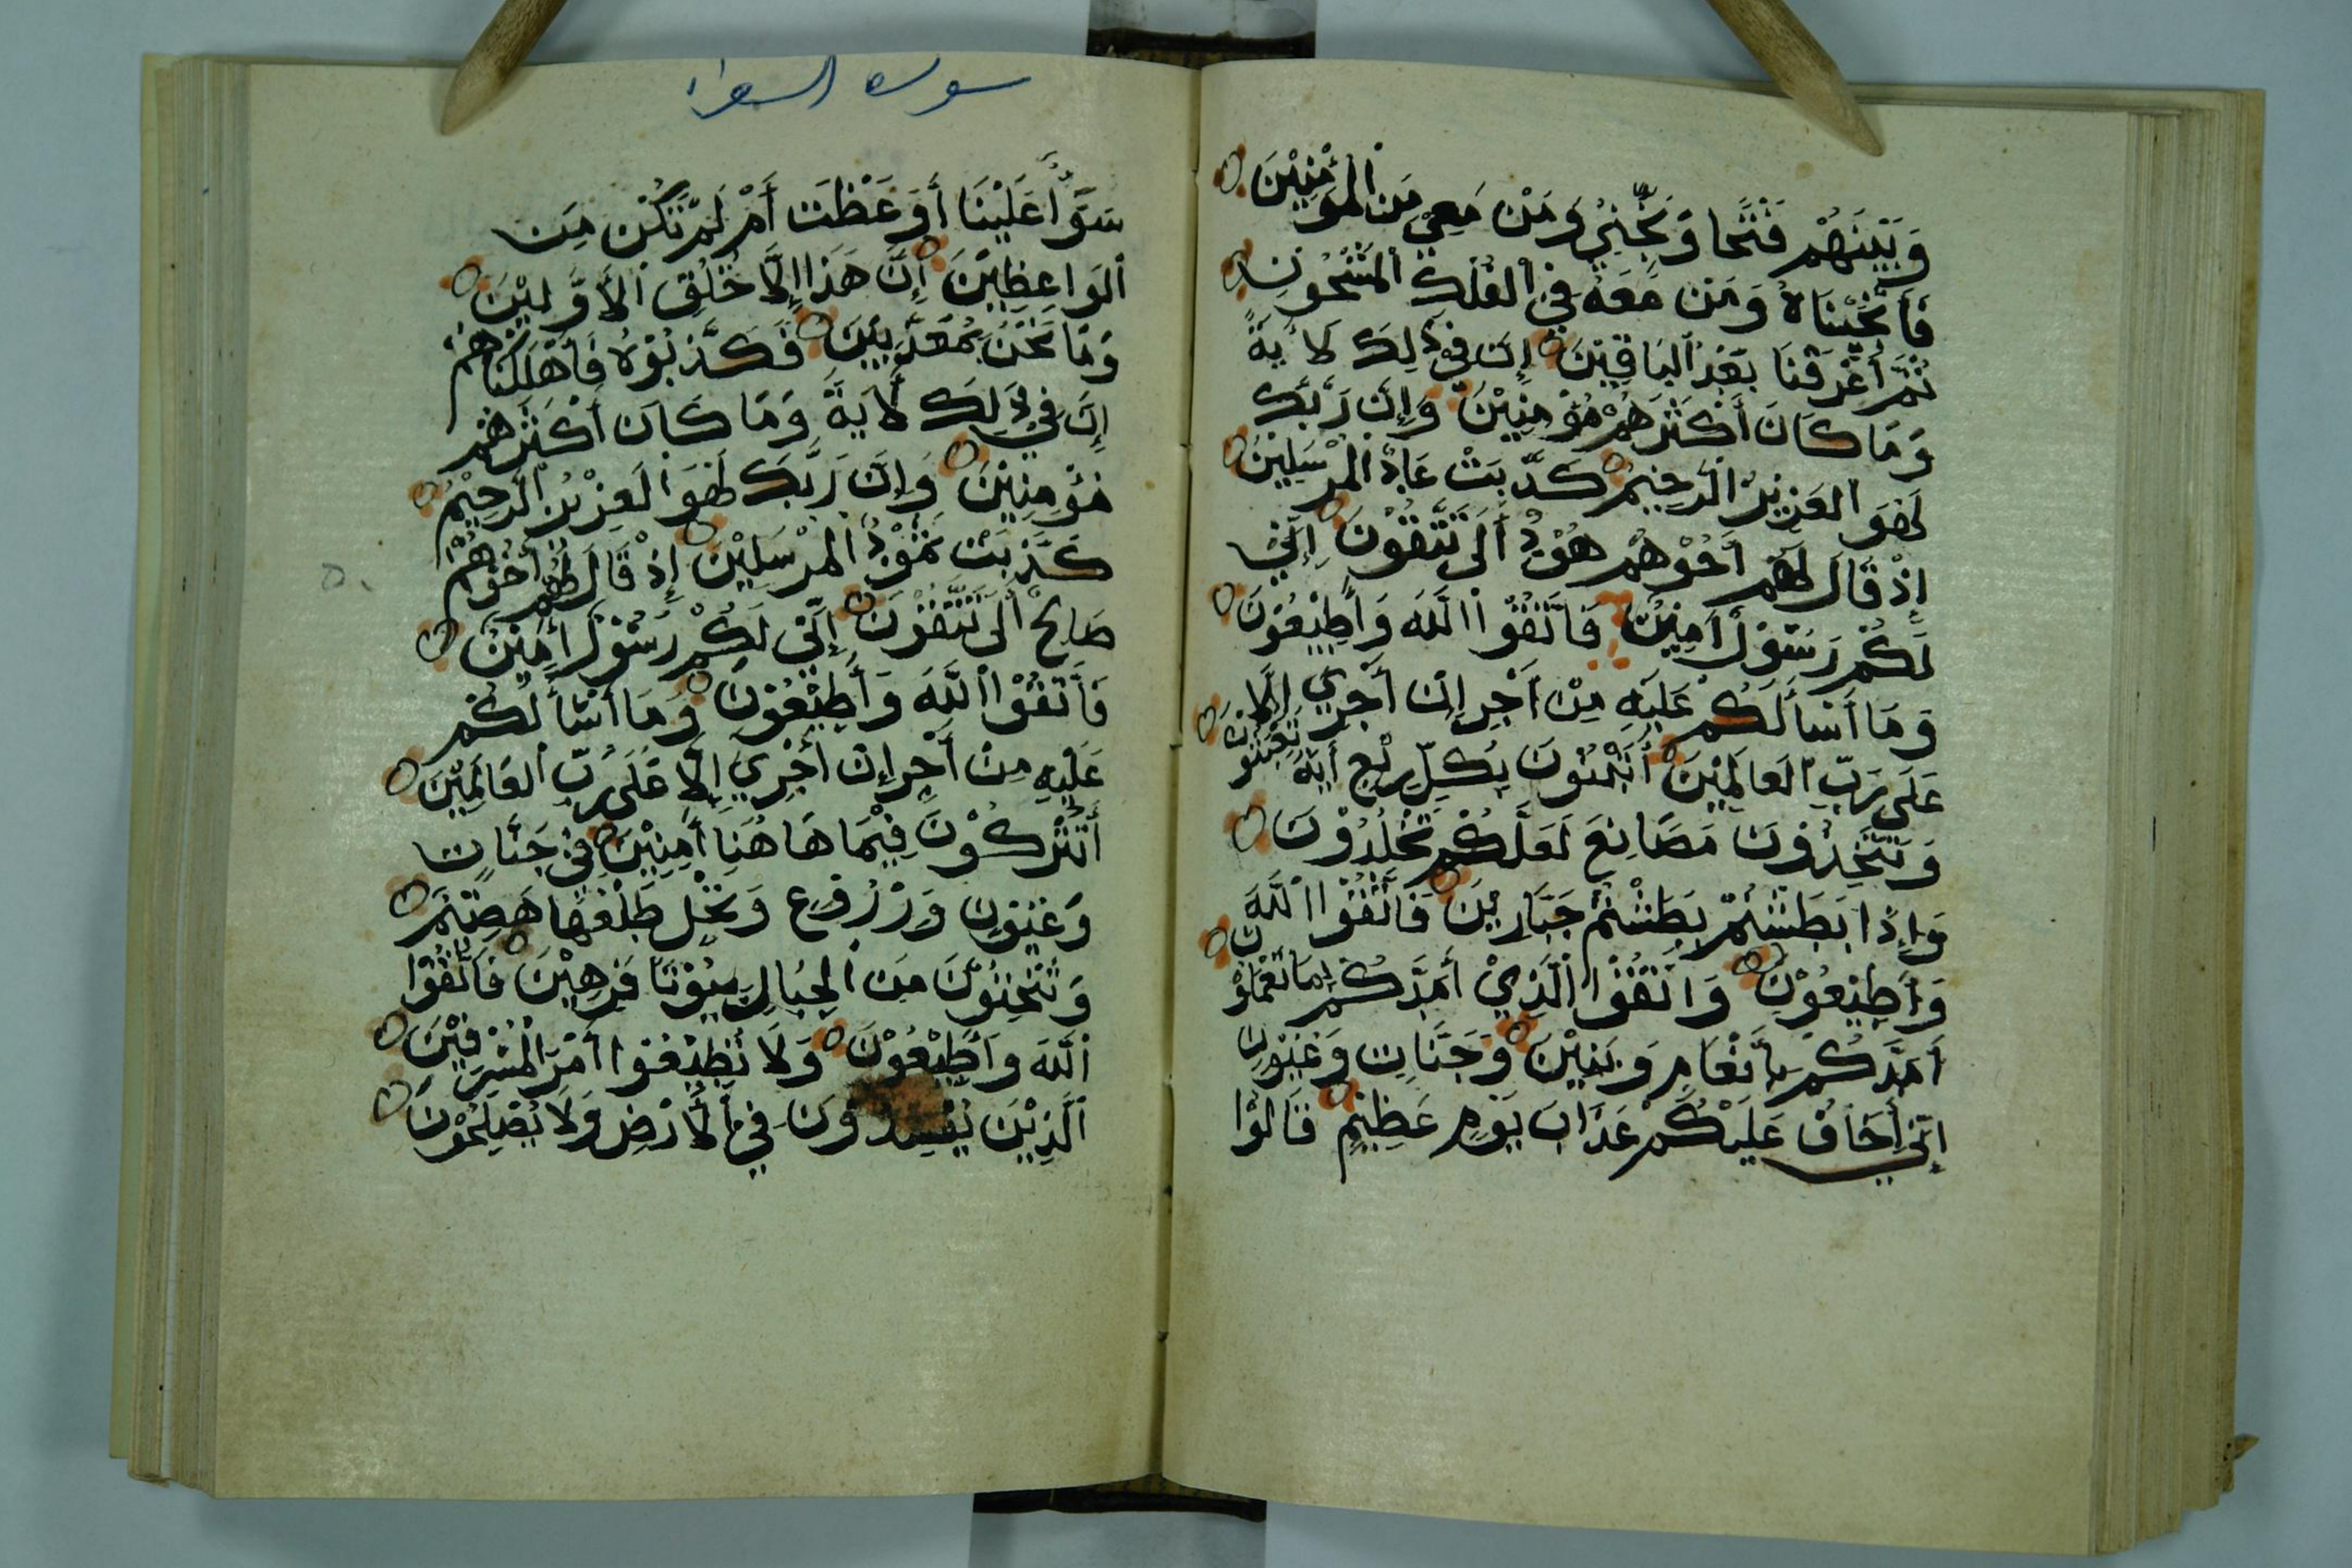 وَبَيْنَهُمْ فَتْحًا وَنَجِّنِيْ وَمَنْ مَعِيْ مِنَ الْمُؤْمِنِيْنَ
فَأَنْجَيْنَاهُ وَمَنْ مَعَهُ فِي الْفُلْكِ الْمَشْحُونِ
ثُمَّ أَغْرَقْنَا بَعْدُ الْبَاقِيْنَ إِنَّ فِي ذَلِكَ لَأَيَةً
وَمَا كَانَ أَكْثَرَهُمْ مُؤْمِنِيْنَ وَإِنَّ رَبَّكَ
لَهُوَ الْعَزِيْزُ الرَّحِيْمُ كَذَّبَتْ عَادُ الْمُرْسَلِيْنَ
إِذْ قَالَ لَهُمْ أَخُوْهُمْ هُوْدٌ أَلَى تَتَّقُوْنَ إِنِّي
لَكُمْ رَسُوْلٌ أَمِيْنٌ فَاتَّقُوْا اللَّهَ وَأَطِيْعُوْنِ
وَمَا أَسْأَلُكُمْ عَلَيْهِ مِنْ أَجْرٍ إِنْ أَجْرِيَ إِلَّا
عَلَى رَبِّ الْعَالَمِيْنَ أَتَبْنُوْنَ بِكُلِّ رِيْعٍ أَيَةً تَعْبَثُوْنَ
وَتَتَّخِذُوْنَ مَصَانِعَ لَعَلَّكُمْ تَخْلُدُوْنَ
وَإِذَا بَطَشْتُمْ بَطَشْتُمْ جَبَّارِيْنَ فَاتَّقُوْا اللَّهَ
وَأَطِيْعُوْنِ وَاتَّقُوْا الَّذِيْ أَمَدَّكُمْ بِمَا تَعْمَلُوْنَ
أَمَدَّكُمْ بِأَنْعَامٍ وَبَنِيْنَ وَجَنَّاتٍ وَعُيُوْنٍ
إِنِّي أَخَافُ عَلَيْكُمْ عَذَابَ يَوْمٍ عَظِيْمٍ قَالُوْا
سوره الشعراء
سَوَآءٌ عَلَيْنَا أَوَعَظْتَ أَمْ لَمْ تَكُنْ مِنَ
الْوَاعِظِيْنَ إِنَّ هَذَا إِلَّا خُلُقُ الْأَوَّلِيْنَ
وَمَا نَحْنُ بِمُعَذَّبِيْنَ فَكَذَّبُوْهُ فَأَهْلَكْنَاهُمْ
إِنَّ فِي ذَلِكَ لَأَيَةً وَمَا كَانَ أَكْثَرَهُمْ
مُؤْمِنِيْنَ وَإِنَّ رَبَّكَ لَهُوَ الْعَزِيْزُ الرَّحِيْمُ
كَذَّبَتْ ثَمُوْدُ الْمُرْسَلِيْنَ إِذْ قَالَ لَهُمْ أَخُوْهُمْ
صَالِحٌ أَلَى تَتَّقُوْنَ إِنِّي لَكُمْ رَسُوْلٌ أَمِيْنٌ
فَاتَّقُوْا اللَّهَ وَأَطِيْعُوْنِ وَمَا أَسْأَلُكُمْ
عَلَيْهِ مِنْ أَجْرٍ إِنْ أَجْرِيَ إِلَّا عَلَى رَبِّ الْعَالَمِيْنَ
أَتُتْرَكُوْنَ فِيْمَا هَاهُنَا أَمِنِيْنَ فِيْ جَنَّاتٍ
وَعُيُوْنٍ وَزُرُوْعٍ وَنَخْلٍ طَلْعُهَا هَضِيْمٌ
وَتَنْحِتُوْنَ مِنَ الْجِبَالِ بُيُوْتًا فَرِهِيْنَ فَاتَّقُوْا
اللَّهَ وَأَطِيْعُوْنِ وَلَا تُطِيْعُوْا أَمْرَ الْمُسْرِفِيْنَ
الَّذِيْنَ يُفْسِدُوْنَ فِي الْأَرْضِ وَلَا يُصْلِحُوْنَ